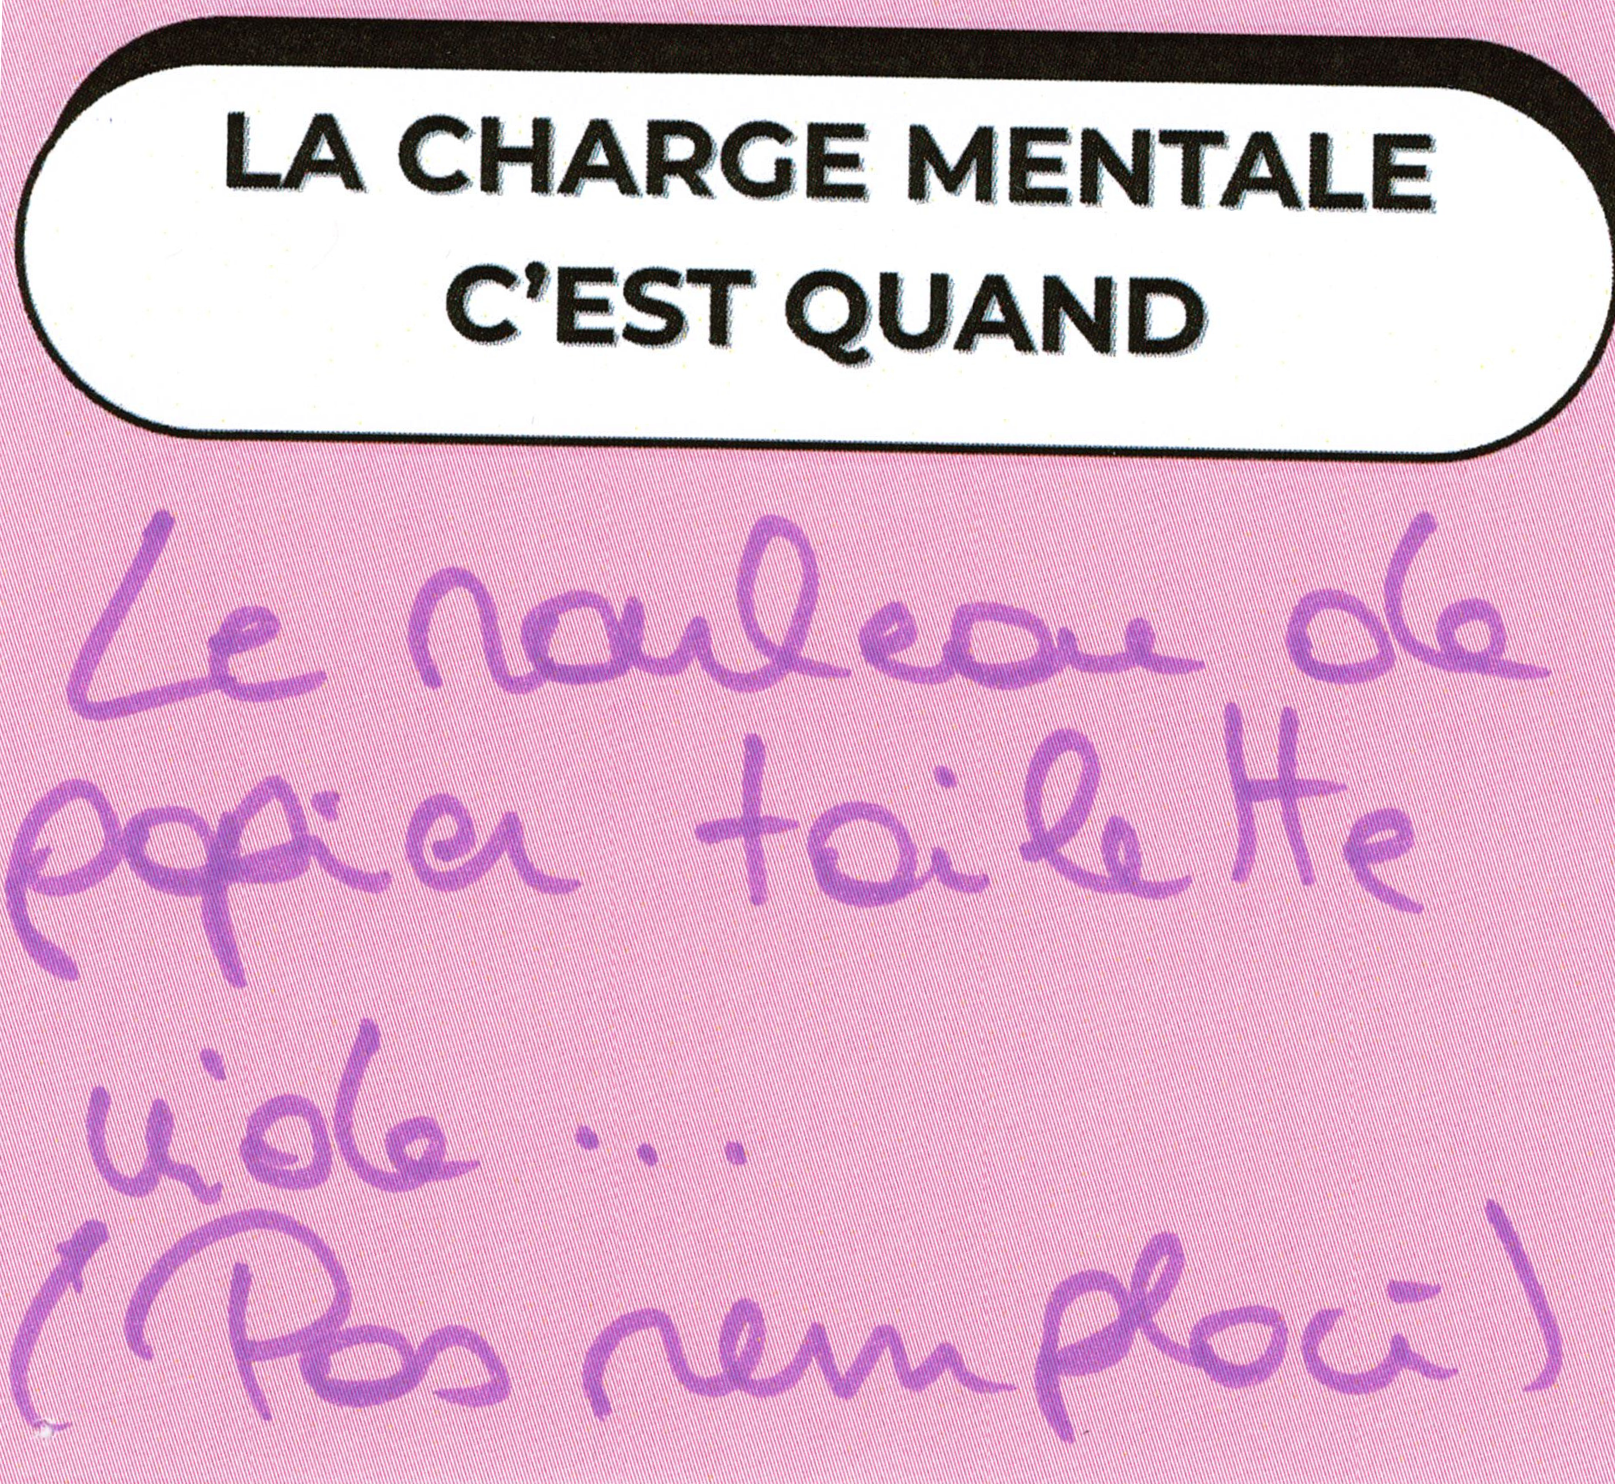 LA CHARGE MENTALE
C'EST QUAND
Le rouleau de
papier toilette
vide ...
(Pas remplacé)